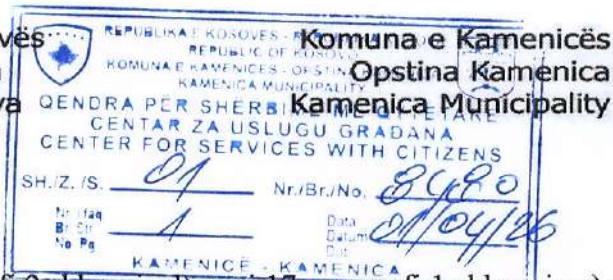 vës
va
Komuna e Kamenicës
Opstina Kamenica
Kamenica Municipality
REPUBLIKA E KOSOVËS -
REPUBLIC OF KOSOVO
KOMUNA E KAMENICES - OPSTINA
KAMENICA MUNICIPALITY
QENDRA PËR SHËRBIME ME QYTETARË
CENTAR ZA USLUGU GRAĐANA
CENTER FOR SERVICES WITH CITIZENS
SH./Z. /S. 01 Nr./Br./No.
Nr. i faq Data
Br. Str. 1 Datum 01/04/26
No. Pg. Dat
KAMENICË - KAMENICA